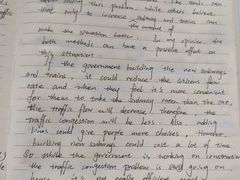 solving this problem, while others
that only to increase subway and trains can
the number of
make the situation better. In my opinion, the
both methods can have a positive effect on
this situation.
If the government building the new subways
and trains, it could reduce the citizens
rate and when they feel it's more convenient
for them to take the subway rather than the car,
the traffic flow will decrease. Therefore, the
traffic congestion will be less. Also, adding
lines could give people more choices. However,
building new subways could cost a lot of time
So while the government is working on construction
the traffic congestion problem is still going on